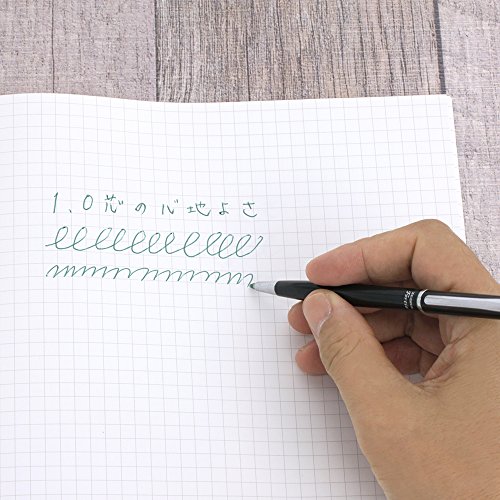 1.0芯の心地よさ